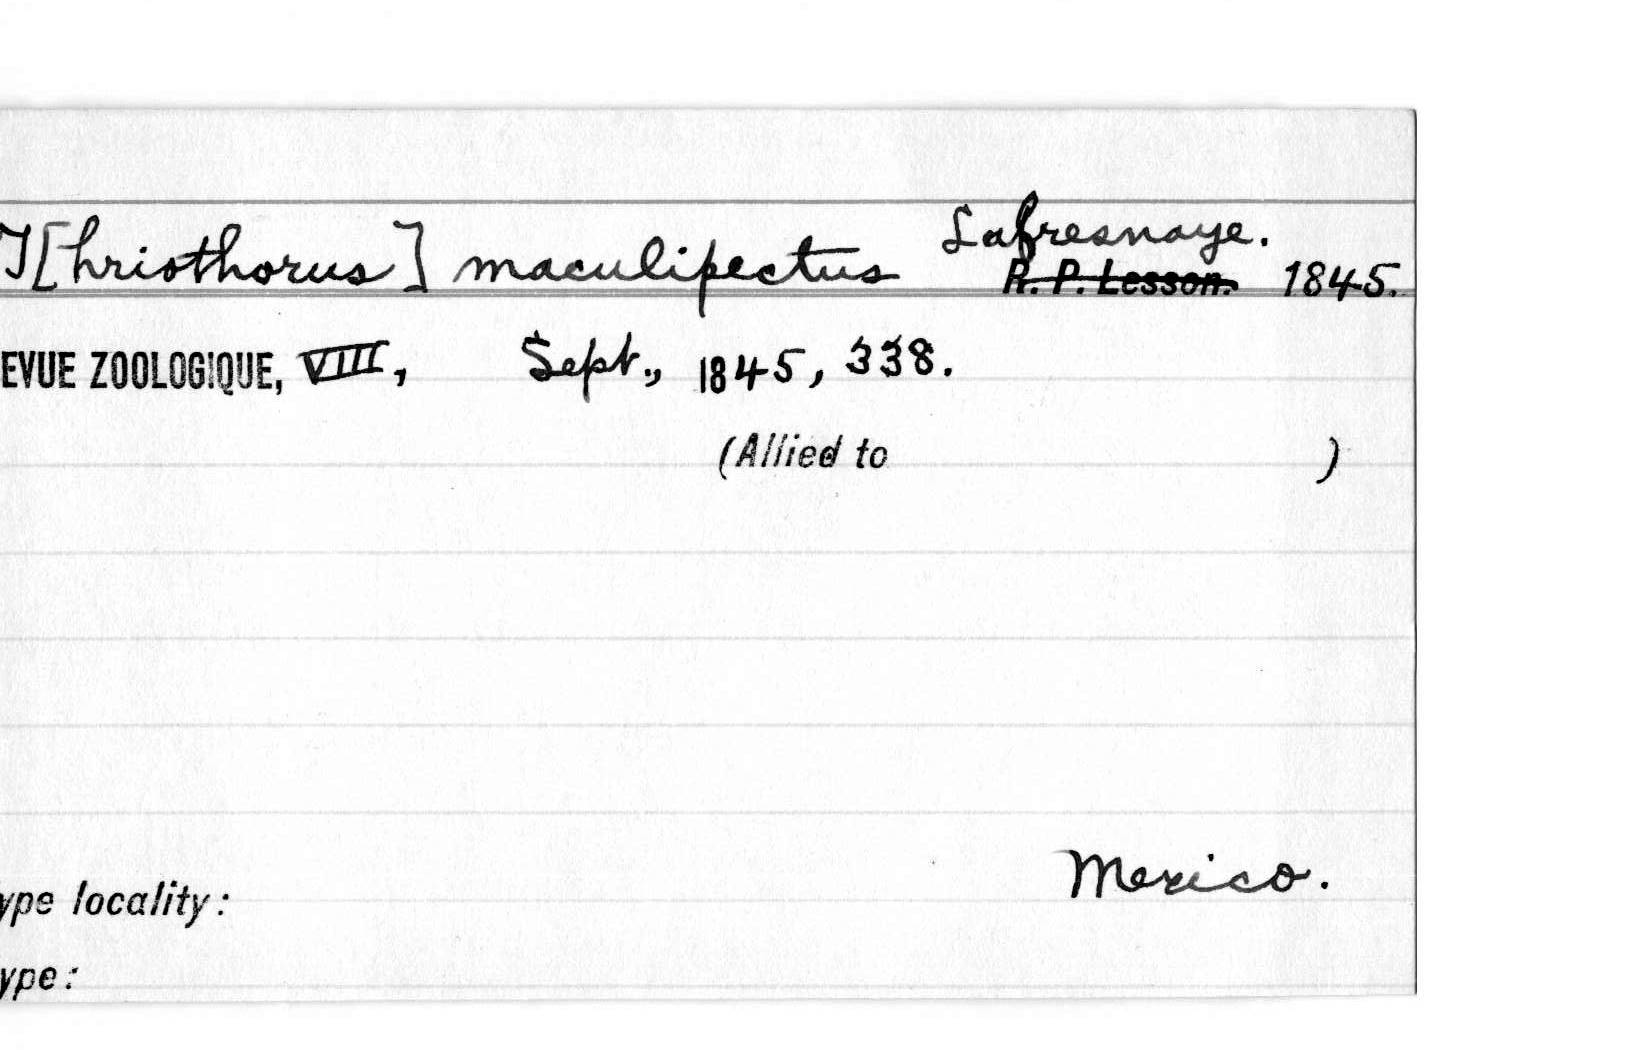 T[hriothorus] maculipectus Lafresnaye.
R. P. Lesson. 1845.
EVUE ZOOLOGIQUE, VIII, Sept., 1845, 338.
(Allied to )
Mexico.
ype locality:
ype: